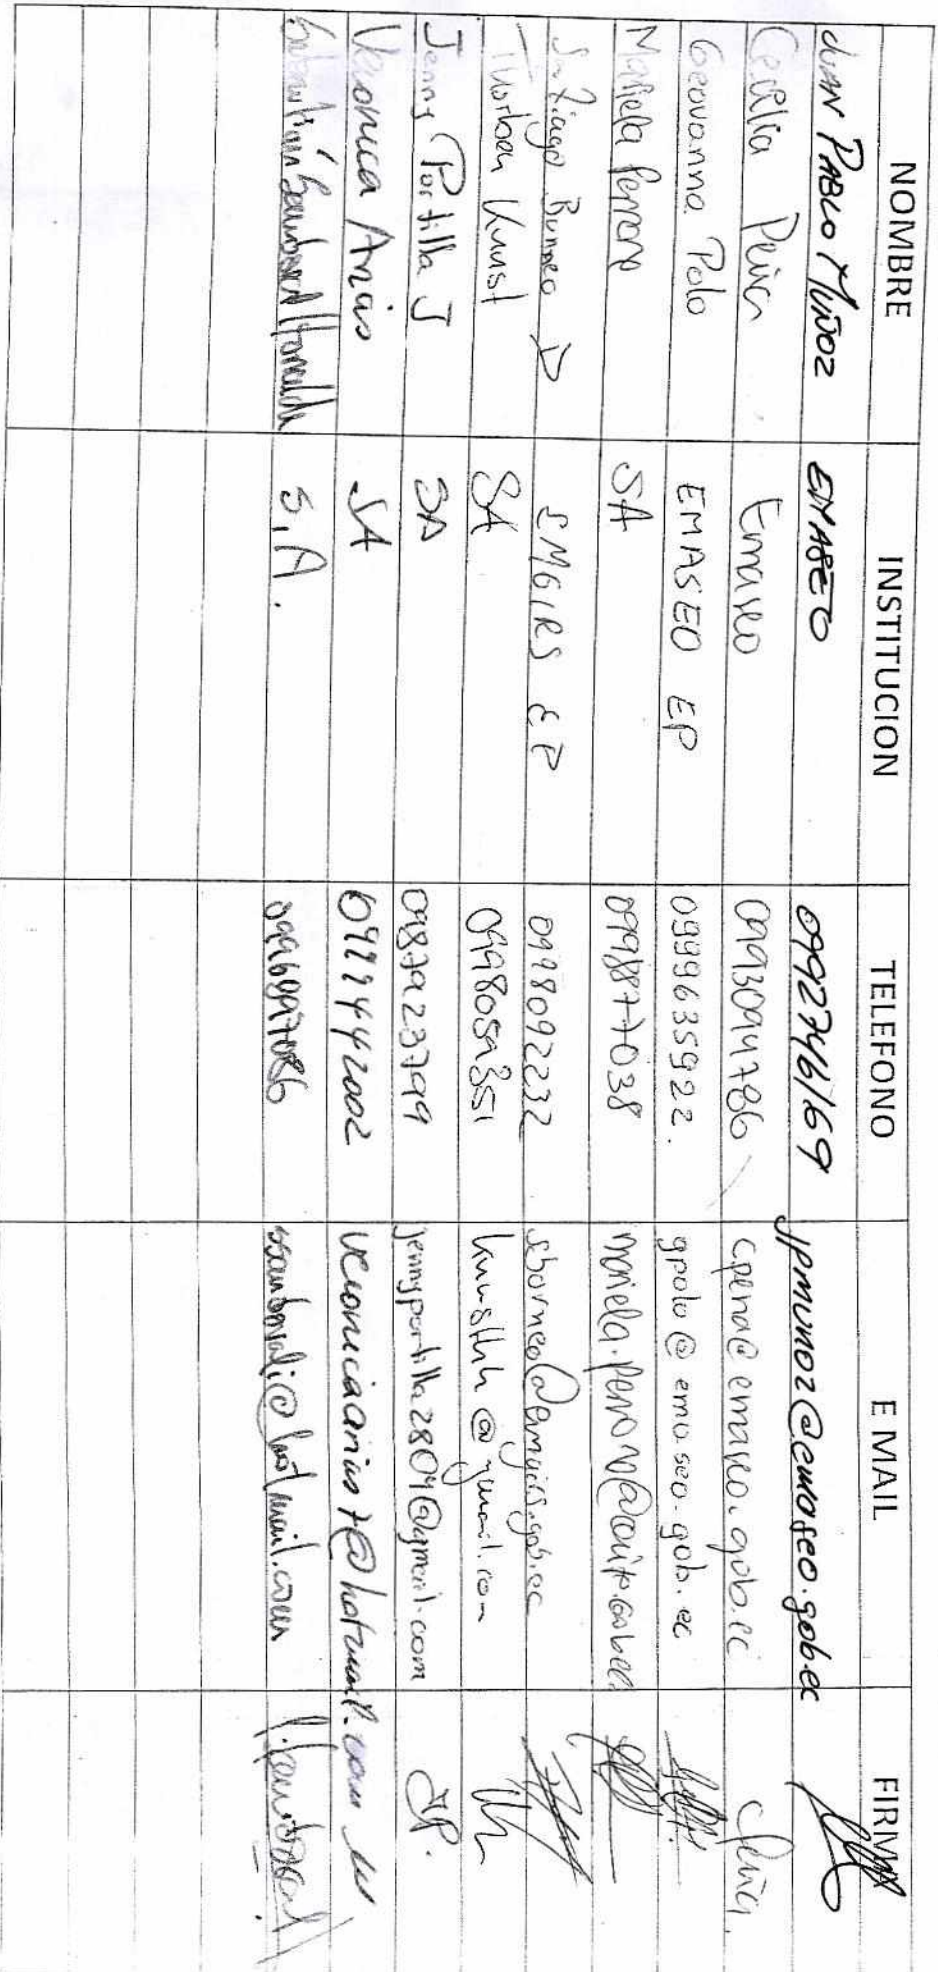 NOMBRE INSTITUCION TELEFONO E MAIL FIRMA
JUAN PABLO MUÑOZ EMASEO 0992746169 jpmunoz@emaseo.gob.ec
Cecilia Peña Emaseo 0993094786 cpena@emaseo.gob.ec CPeña
Geovanna Polo EMASEO EP 0999635922. gpolo@emaseo.gob.ec
Mariela Perrone SA 0998877038
Santiago Borneo D EMGIRS EP 0998092232 sborneo@emgirs.gob.ec
Thorben Knust SA 0998059351 knusthh@gmail.com
Jenny Portilla J SA 0987923799 jennyportilla2804@gmail.com JP.
Veronica Arias SA 0999442002 veronicaarias7@hotmail.com
S.A. 0996997086 @hotmail.com